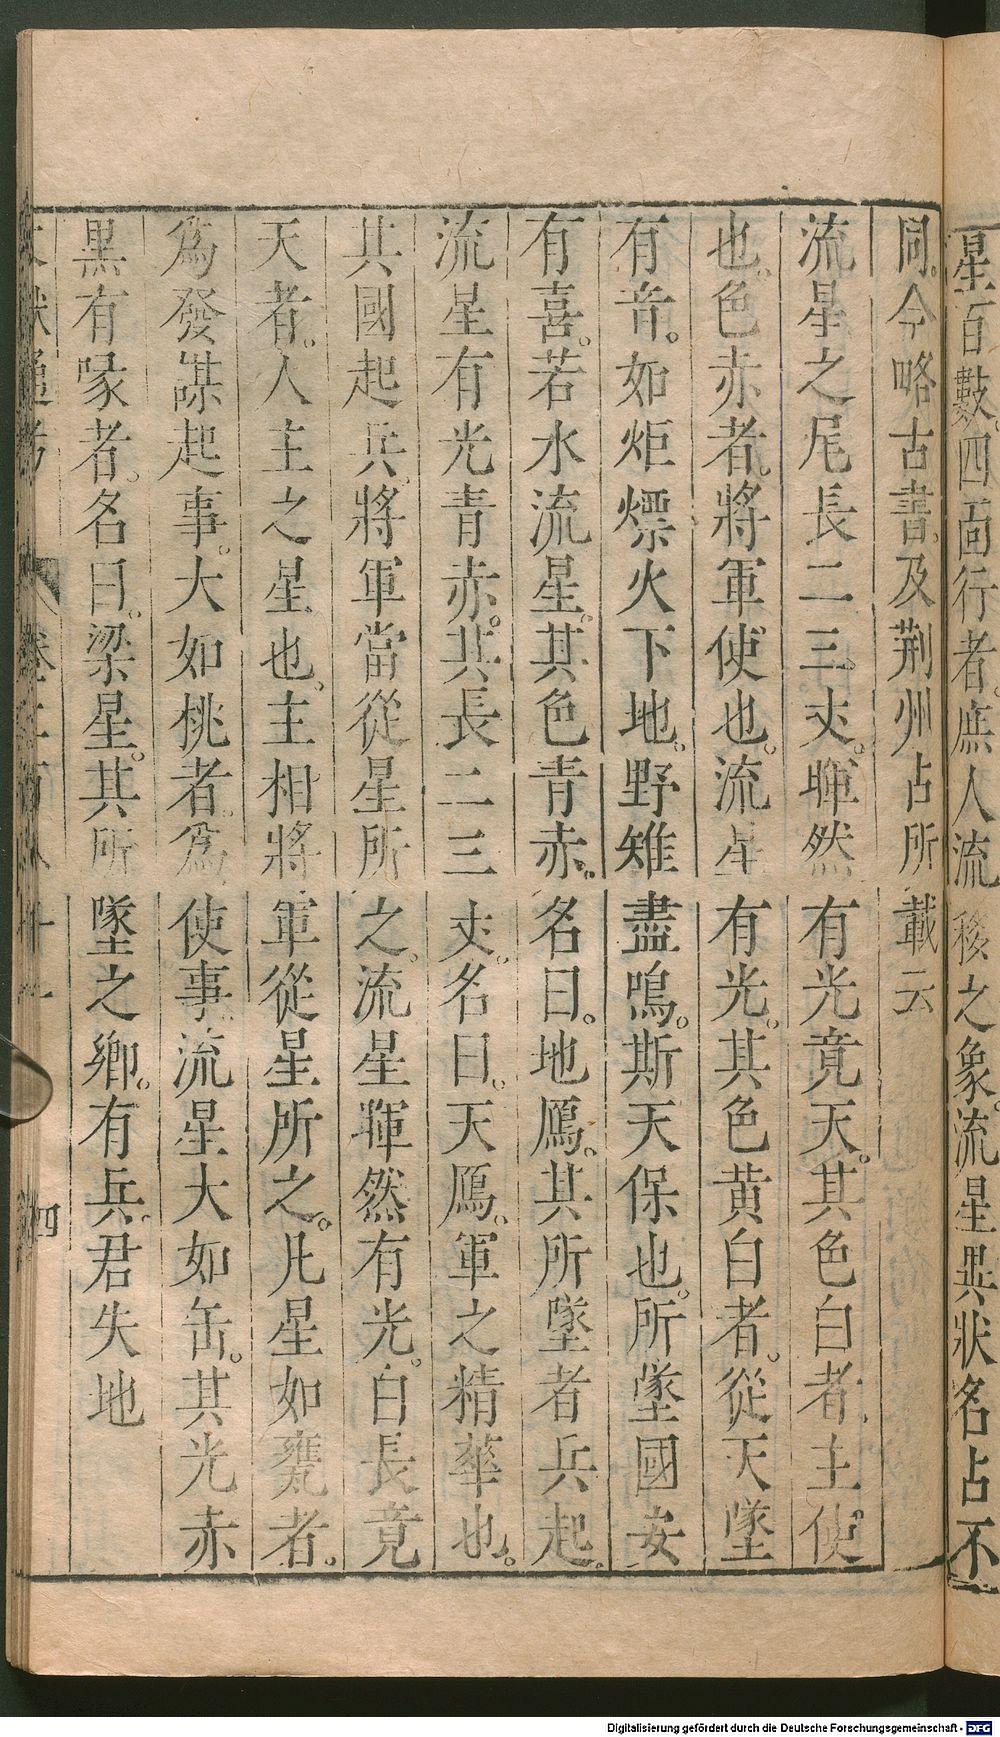 星百數四面行者庶人流移之象流星異狀名占不
同。今略古書。及荆州占所載云
流星之尾長二三丈。暉然有光竟天。其色白者主使
也。色赤者。將軍使也。流星有光。其色黄白者。從天墜
有音。如炬熛火下地。野雉盡鳴。斯天保也。所墜國安
有喜。若水流星。其色青赤。名曰。地鴈。其所墜者兵起。
流星有光青赤。其長二三丈。名曰。天鴈。軍之精華也。
其國起兵。將軍當從星所之。流星暉然有光。白長竟
天者。人主之星也。主相將軍從星所之。凡星如甕者。
爲發謀起事。大如桃者。爲使事。流星大如缶。其光赤
黒有喙者。名曰。梁星。其所墜之鄉。有兵。君失地
四
Digitalisierung gefördert durch die Deutsche Forschungsgemeinschaft - DFG